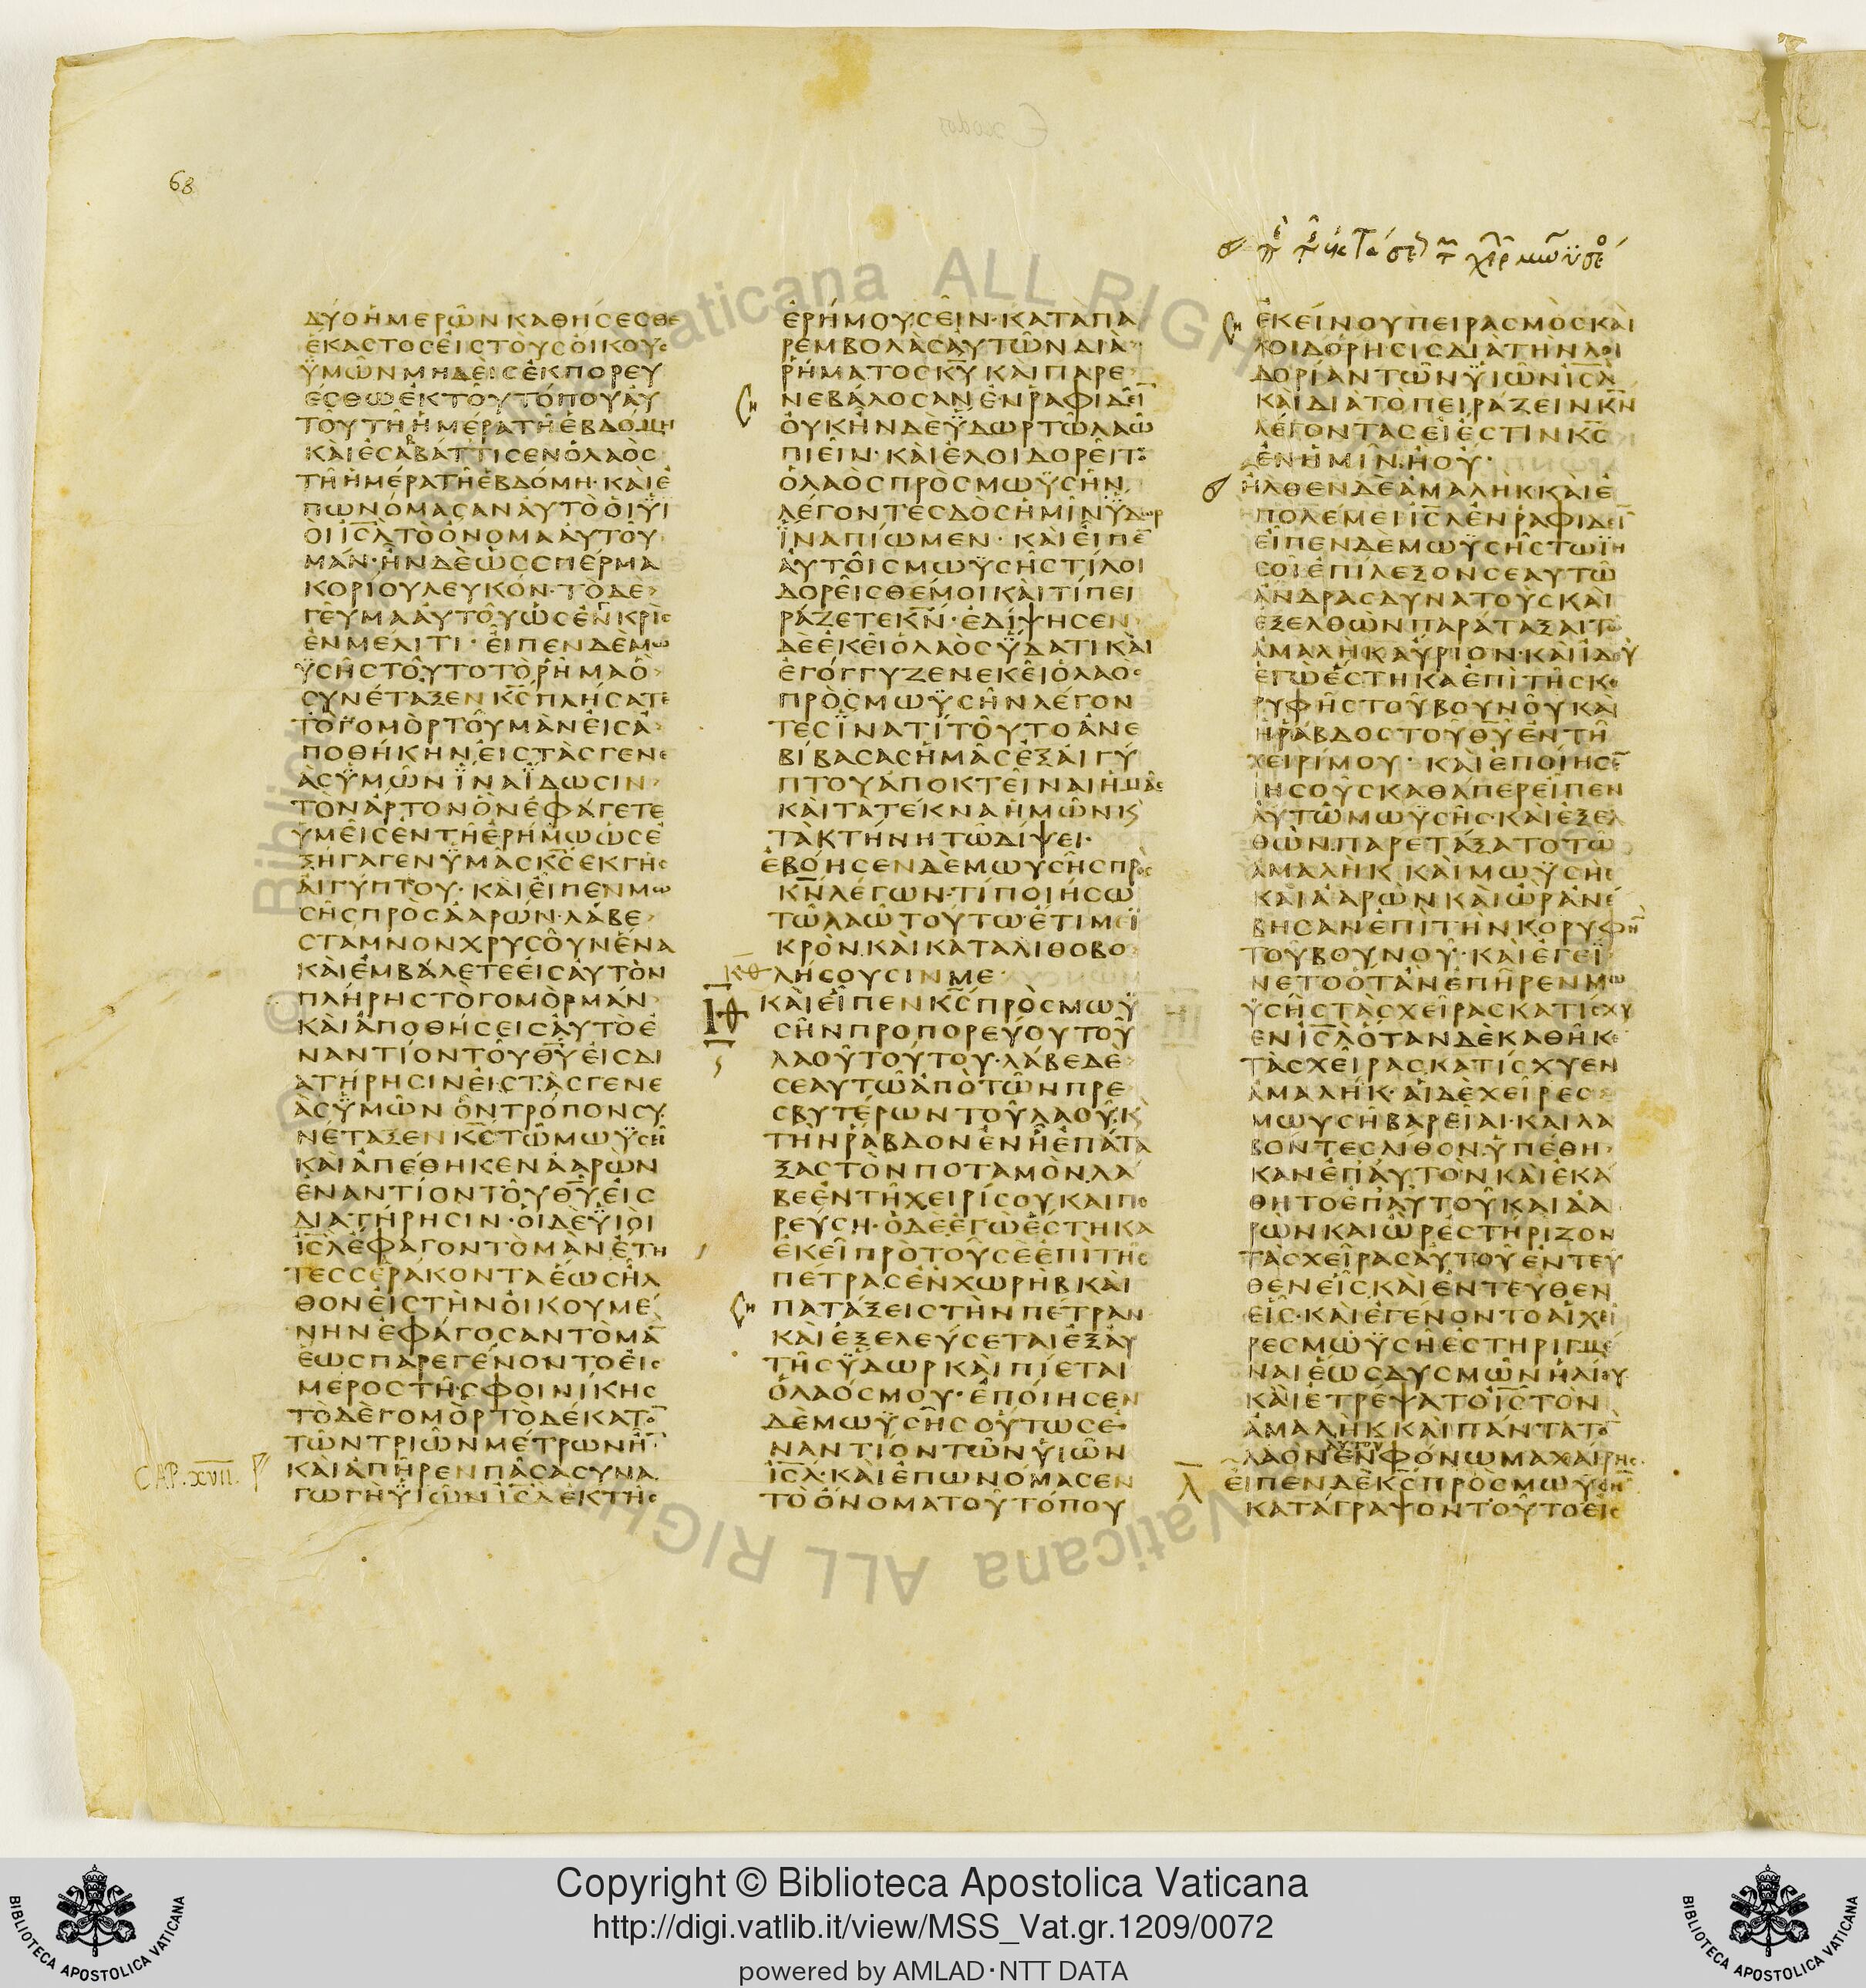 68
ΔΥΟΗΜΕΡΩΝΚΑΘΗΣΕΣΘΕ
ΕΚΑΣΤΟΣΕΙΣΤΟΥΣΟΙΚΟΥΣ
ΫΜΩΝΜΗΔΕΙΣΕΚΠΟΡΕΥ
ΕΣΘΩΕΚΤΟΥΤΟΠΟΥΑΥ
ΤΟΥΤΗΗΜΕΡΑΤΗΕΒΔΟΜΗ
ΚΑΙΕΣΑΒΑΤΤΙΣΕΝΟΛΑΟΣ
ΤΗΗΜΕΡΑΤΗΕΒΔΟΜΗ·ΚΑΙΕ
ΠΩΝΟΜΑΣΑΝΑΥΤΟΟΙΫΙ
ΟΙΙΣ̅Λ̅ΤΟΟΝΟΜΑΑΥΤΟΥ
ΜΑΝ·ΗΝΔΕΩΣΣΠΕΡΜΑ
ΚΟΡΙΟΥΛΕΥΚΟΝ·ΤΟΔΕ
ΓΕΥΜΑΑΥΤΟΥΩΣΕΝΚΡΙΣ
ΕΝΜΕΛΙΤΙ·ΕΙΠΕΝΔΕΜΩ
ΫΣΗΣΤΟΥΤΟΤΟΡΗΜΑΟ
ΣΥΝΕΤΑΞΕΝΚ̅Σ̅ΠΛΗΣΑΤΕ
ΤΟΓΟΜΟΡΤΟΥΜΑΝΕΙΣΑ
ΠΟΘΗΚΗΝΕΙΣΤΑΣΓΕΝΕ
ΑΣΫΜΩΝΪΝΑΪΔΩΣΙΝ
ΤΟΝΑΡΤΟΝΟΝΕΦΑΓΕΤΕ
ΫΜΕΙΣΕΝΤΗΕΡΗΜΩΩΣΕ
ΞΗΓΑΓΕΝΫΜΑΣΚ̅Σ̅ΕΚΓΗΣ
ΑΙΓΥΠΤΟΥ·ΚΑΙΕΙΠΕΝΜΩ
ΣΗΣΠΡΟΣΑΑΡΩΝ·ΛΑΒΕ
ΣΤΑΜΝΟΝΧΡΥΣΟΥΝΕΝΑ
ΚΑΙΕΜΒΑΛΕΤΕΕΙΣΑΥΤΟΝ
ΠΛΗΡΗΣΤΟΓΟΜΟΡΜΑΝ
ΚΑΙΑΠΟΘΗΣΕΙΣΑΥΤΟΕ
ΝΑΝΤΙΟΝΤΟΥΘ̅Υ̅ΕΙΣΔΙ
ΑΤΗΡΗΣΙΝΕΙΣΤΑΣΓΕΝΕ
ΑΣΫΜΩΝΟΝΤΡΟΠΟΝΣΥ
ΝΕΤΑΞΕΝΚ̅Σ̅ΤΩΜΩΫΣΗ
ΚΑΙΑΠΕΘΗΚΕΝΑΑΡΩΝ
ΕΝΑΝΤΙΟΝΤΟΥΘ̅Υ̅ΕΙΣ
ΔΙΑΤΗΡΗΣΙΝ·ΟΙΔΕΫΙΟΙ
ΙΣ̅Λ̅ΕΦΑΓΟΝΤΟΜΑΝΕΤΗ
ΤΕΣΣΕΡΑΚΟΝΤΑΕΩΣΗΛ
ΘΟΝΕΙΣΤΗΝΟΙΚΟΥΜΕ
ΝΗΝΕΦΑΓΟΣΑΝΤΟΜΑ̅
ΕΩΣΠΑΡΕΓΕΝΟΝΤΟΕΙΣ
ΜΕΡΟΣΤΗΣΦΟΙΝΙΚΗΣ
ΤΟΔΕΓΟΜΟΡΤΟΔΕΚΑΤΟ̅
ΤΩΝΤΡΙΩΝΜΕΤΡΩΝΗ̅
CAP. XVII.
ΚΑΙΑΠΗΡΕΝΠΑΣΑΣΥΝΑ
ΓΩΓΗΫΙΩΝΙΣ̅Λ̅ΕΚΤΗΣ
ΕΡΗΜΟΥΣΕΙΝ·ΚΑΤΑΠΑ
ΡΕΜΒΟΛΑΣΑΥΤΩΝΔΙΑ
ΡΗΜΑΤΟΣΚ̅Υ̅ΚΑΙΠΑΡΕ
ΝΕΒΑΛΟΣΑΝΕΝΡΑΦΙΔΕΙ̅
ΟΥΚΗΝΔΕΫΔΩΡΤΩΛΑΩ
ΠΙΕΙΝ·ΚΑΙΕΛΟΙΔΟΡΕΙΤΟ
ΟΛΑΟΣΠΡΟΣΜΩΫΣΗΝ
ΛΕΓΟΝΤΕΣΔΟΣΗΜΙΝΫΔΩΡ
ΪΝΑΠΙΩΜΕΝ·ΚΑΙΕΙΠΕ̅
ΑΥΤΟΙΣΜΩΫΣΗΣΤΙΛΟΙ
ΔΟΡΕΙΣΘΕΜΟΙΚΑΙΤΙΠΕΙ
ΡΑΖΕΤΕΚ̅Ν̅·ΕΔΙΨΗΣΕΝ
ΔΕΕΚΕΙΟΛΑΟΣΫΔΑΤΙΚΑΙ
ΕΓΟΓΓΥΖΕΝΕΚΕΙΟΛΑΟΣ
ΠΡΟΣΜΩΫΣΗΝΛΕΓΟΝ
ΤΕΣΪΝΑΤΙΤΟΥΤΟΑΝΕ
ΒΙΒΑΣΑΣΗΜΑΣΕΞΑΙΓΥ
ΠΤΟΥΑΠΟΚΤΕΙΝΑΙΗΜΑΣ
ΚΑΙΤΑΤΕΚΝΑΗΜΩΝΚϚ
ΤΑΚΤΗΝΗΤΩΔΙΨΕΙ·
ΕΒΟΗΣΕΝΔΕΜΩΥΣΗΣΠΡΟΣ
Κ̅Ν̅ΛΕΓΩΝ·ΤΙΠΟΙΗΣΩ
ΤΩΛΑΩΤΟΥΤΩΕΤΙΜΕΙ
ΚΡΟΝΚΑΙΚΑΤΑΛΙΘΟΒΟ
ΚΘ ΛΗΣΟΥΣΙΝΜΕ
ΚΑΙΕΙΠΕΝΚ̅Σ̅ΠΡΟΣΜΩΫ
ΣΗΝΠΡΟΠΟΡΕΥΟΥΤΟΥ
ΛΑΟΥΤΟΥΤΟΥ·ΛΑΒΕΔΕ
ΣΕΑΥΤΩΑΠΟΤΩΝΠΡΕ
ΣΒΥΤΕΡΩΝΤΟΥΛΑΟΥ·Κ
ΤΗΝΡΑΒΔΟΝΕΝΗΕΠΑΤΑ
ΞΑΣΤΟΝΠΟΤΑΜΟΝΛΑ
ΒΕΕΝΤΗΧΕΙΡΙΣΟΥΚΑΙΠΟ
ΡΕΥΣΗ·ΟΔΕΕΓΩΕΣΤΗΚΑ
ΕΚΕΙΠΡΟΤΟΥΣΕΕΠΙΤΗΣ
ΠΕΤΡΑΣΕΝΧΩΡΗΒΚΑΙ
ΠΑΤΑΞΕΙΣΤΗΝΠΕΤΡΑΝ
ΚΑΙΕΞΕΛΕΥΣΕΤΑΙΕΞΑΥ
ΤΗΣΫΔΩΡΚΑΙΠΙΕΤΑΙ
ΟΛΑΟΣΜΟΥ·ΕΠΟΙΗΣΕΝ
ΔΕΜΩΫΣΗΣΟΥΤΩΣΕ
ΝΑΝΤΙΟΝΤΩΝΫΙΩΝ
ΙΣ̅Λ̅·ΚΑΙΕΠΩΝΟΜΑΣΕΝ
ΤΟΟΝΟΜΑΤΟΥΤΟΠΟΥ
ΕΚΕΙΝΟΥΠΕΙΡΑΣΜΟΣΚΑΙ
ΛΟΙΔΟΡΗΣΙΣΔΙΑΤΗΝΛΟΙ
ΔΟΡΙΑΝΤΩΝΫΙΩΝΙΣ̅Λ̅
ΚΑΙΔΙΑΤΟΠΕΙΡΑΖΕΙΝΚ̅Ν̅
ΛΕΓΟΝΤΑΣΕΙΕΣΤΙΝΚ̅Σ̅
ΕΝΗΜΙΝΗΟΥ·
ΗΛΘΕΝΔΕΑΜΑΛΗΚΚΑΙΕ
ΠΟΛΕΜΕΙΙΣ̅Λ̅ΕΝΡΑΦΙΔΕΙ̅
ΕΙΠΕΝΔΕΜΩΫΣΗΣΤΩΪΗ
ΣΟΙΕΠΙΛΕΞΟΝΣΕΑΥΤΩ
ΑΝΔΡΑΣΔΥΝΑΤΟΥΣΚΑΙ
ΕΞΕΛΘΩΝΠΑΡΑΤΑΞΑΙΤΩ
ΑΜΑΛΗΚΑΥΡΙΟΝ·ΚΑΙΪΔΟΥ
ΕΓΩΕΣΤΗΚΑΕΠΙΤΗΣΚΟ
ΡΥΦΗΣΤΟΥΒΟΥΝΟΥΚΑΙ
ΗΡΑΒΔΟΣΤΟΥΘ̅Υ̅ΕΝΤΗ
ΧΕΙΡΙΜΟΥ·ΚΑΙΕΠΟΙΗΣΕ̅
ΙΗΣΟΥΣΚΑΘΑΠΕΡΕΙΠΕΝ
ΑΥΤΩΜΩΫΣΗΣ·ΚΑΙΕΞΕΛ
ΘΩΝΠΑΡΕΤΑΞΑΤΟΤΩ
ΑΜΑΛΗΚΚΑΙΜΩΫΣΗΣ
ΚΑΙΑΑΡΩΝΚΑΙΩΡΑΝΕ
ΒΗΣΑΝΕΠΙΤΗΝΚΟΡΥΦΗ̅
ΤΟΥΒΟΥΝΟΥ·ΚΑΙΕΓΕΙ
ΝΕΤΟΟΤΑΝΕΠΗΡΕΝΜΩ
ΫΣΗΣΤΑΣΧΕΙΡΑΣΚΑΤΙΣΧΥ
ΕΝΙΣ̅Λ̅ΟΤΑΝΔΕΚΑΘΗΚΕ
ΤΑΣΧΕΙΡΑΣΚΑΤΙΣΧΥΕΝ
ΑΜΑΛΗΚ·ΑΙΔΕΧΕΙΡΕΣ
ΜΩΥΣΗΒΑΡΕΙΑΙ·ΚΑΙΛΑ
ΒΟΝΤΕΣΛΙΘΟΝΫΠΕΘΗ
ΚΑΝΕΠΑΥΤΟΝΚΑΙΕΚΑ
ΘΗΤΟΕΠΑΥΤΟΥΚΑΙΑΑ
ΡΩΝΚΑΙΩΡΕΣΤΗΡΙΖΟΝ
ΤΑΣΧΕΙΡΑΣΑΥΤΟΥΕΝΤΕΥ
ΘΕΝΕΙΣΚΑΙΕΝΤΕΥΘΕΝ
ΕΙΣ·ΚΑΙΕΓΕΝΟΝΤΟΑΙΧΕΙ
ΡΕΣΜΩΫΣΗΕΣΤΗΡΙΓΜΕ
ΝΑΙΕΩΣΔΥΣΜΩΝΗΛΙΟΥ
ΚΑΙΕΤΡΕΨΑΤΟΙ̅Σ̅ΤΟΝ
ΑΜΑΛΗΚΚΑΙΠΑΝΤΑΤΟ̅
ΑΥΤΟΥ
ΛΑΟΝΕΝΦΟΝΩΜΑΧΑΙΡΗΣ·
Λ̅ ΕΙΠΕΝΔΕΚ̅Σ̅ΠΡΟΣΜΩΥΣΗ̅
ΚΑΤΑΓΡΑΨΟΝΤΟΥΤΟΕΙΣ
Copyright © Biblioteca Apostolica Vaticana
http://digi.vatlib.it/view/MSS_Vat.gr.1209/0072
powered by AMLAD·NTT DATA
BIBLIOTECA APOSTOLICA VATICANA
BIBLIOTECA APOSTOLICA VATICANA